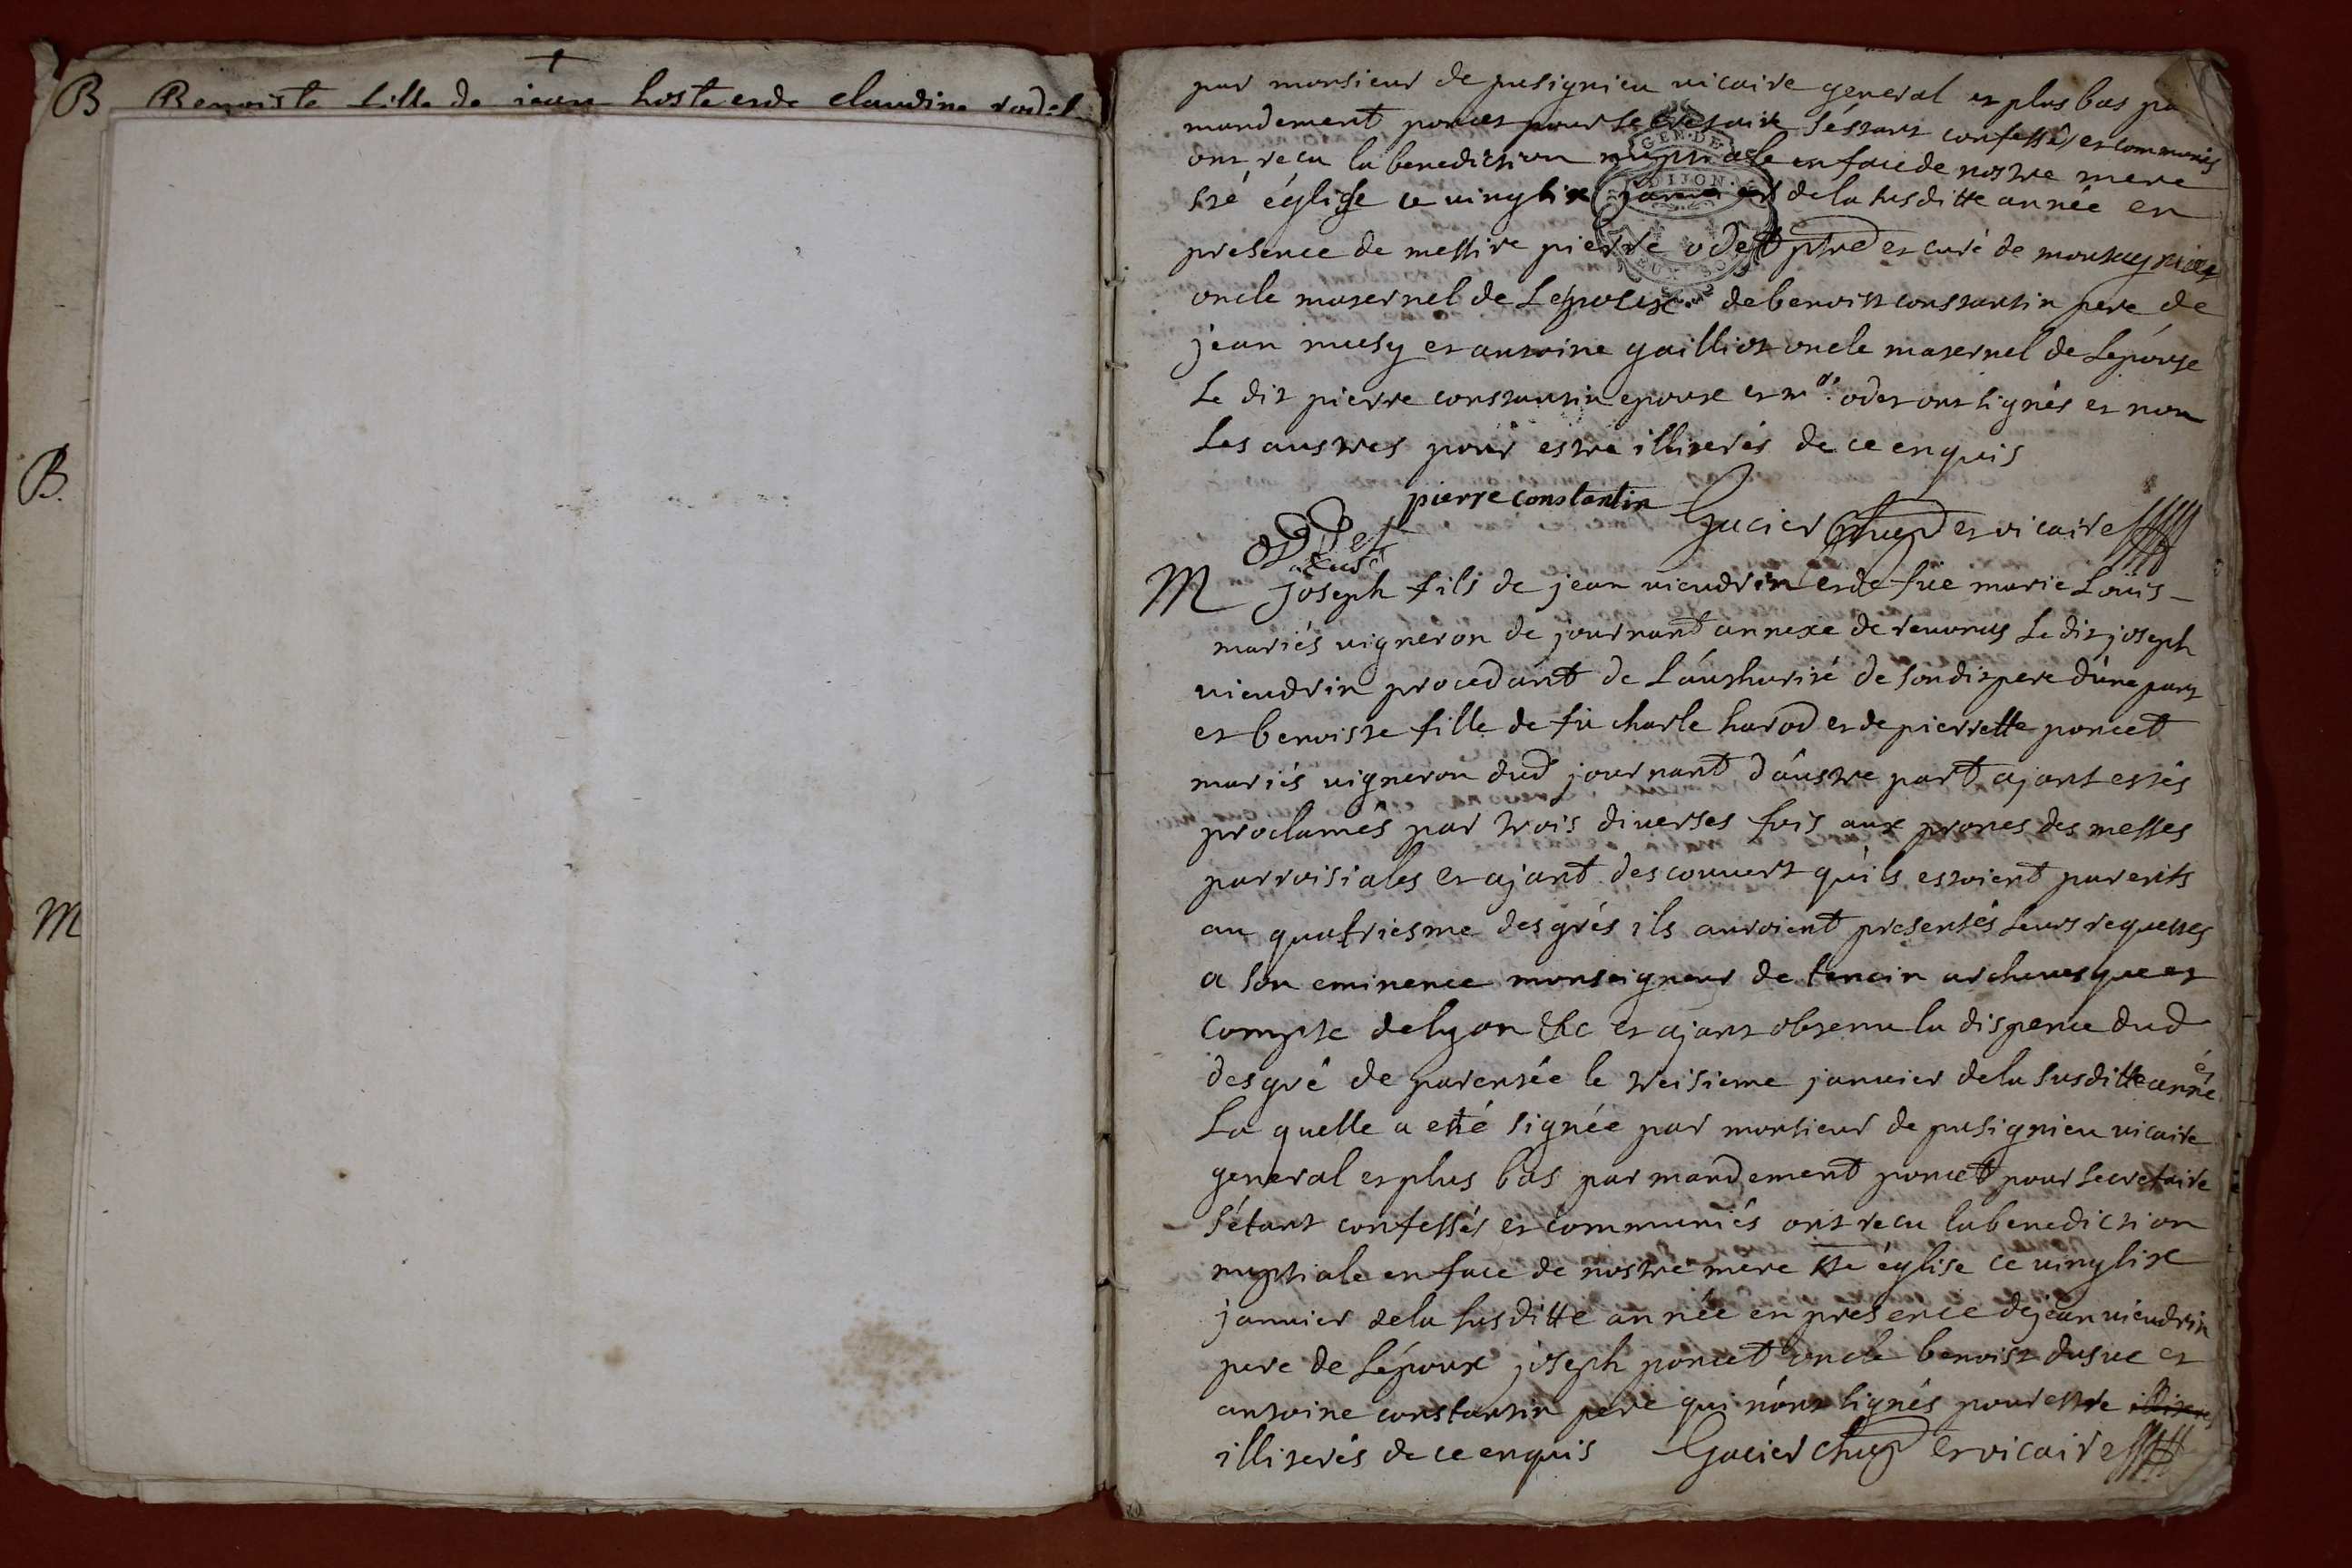 B Benoiste fille de jean hoste et de claudine rodet
B.
M
par monsieur de pusignieu vicaire general et plus bas par
mandement poncet pour secretaire s'éstant confessés et communiés
ont recu la benediction nuptiale en face de nostre mere
ste église ce vingtsix janvier de la susditte année en
presence de messire pierre odet ptre et curé de
oncle maternel de Lepoux de benoist constantin pere de
jean musy et antoine gailliot oncle maternel de Lépouse
Le dit pierre constantin epoux et mre. odet ont signés et non
Les austres pour estre illiterés de ce enquis
pierre constantin
Gacier et vicaire
odet
curé
M Joseph fils de jean vieudrin et de füe marie Loüis
mariés vigneron de journant annexe de revonas Le dit joseph
vieudrin procedant de L'authorité de sondit pere d'une part
et benoiste fille de fü charle harod et de pierrette poncet
mariés vigneron dud journant d'austre part ajant estés
proclamés par trois diverses fois aux prones des messes
parroisiales et ajant descouvert qu'ils estoient parents
au quatriesme desgrés ils auroient presentés leurs requestes
a son eminence monseigneur de tencin archevesque et
compte de lyon &c et ajant obtenu la dispence dud
desgré de parentée le treisieme janvier de la susditte année
La quelle a eté signée par monsieur de pusignieu vicaire
general et plus bas par mandement poncet pour secretaire
s'étant confessés et communiés ont recu la benediction
nuptiale en face de nostre mere ste église ce vingtsix
janvier de la susditte année en presence de jean vieudrin
pere de Lépoux joseph poncet oncle benoist dusuc et
antoine constantin pere qui n'ont signés pour estre illiterés
illiterés de ce enquis Gacier et vicaire
GEN. DE
DIJON.